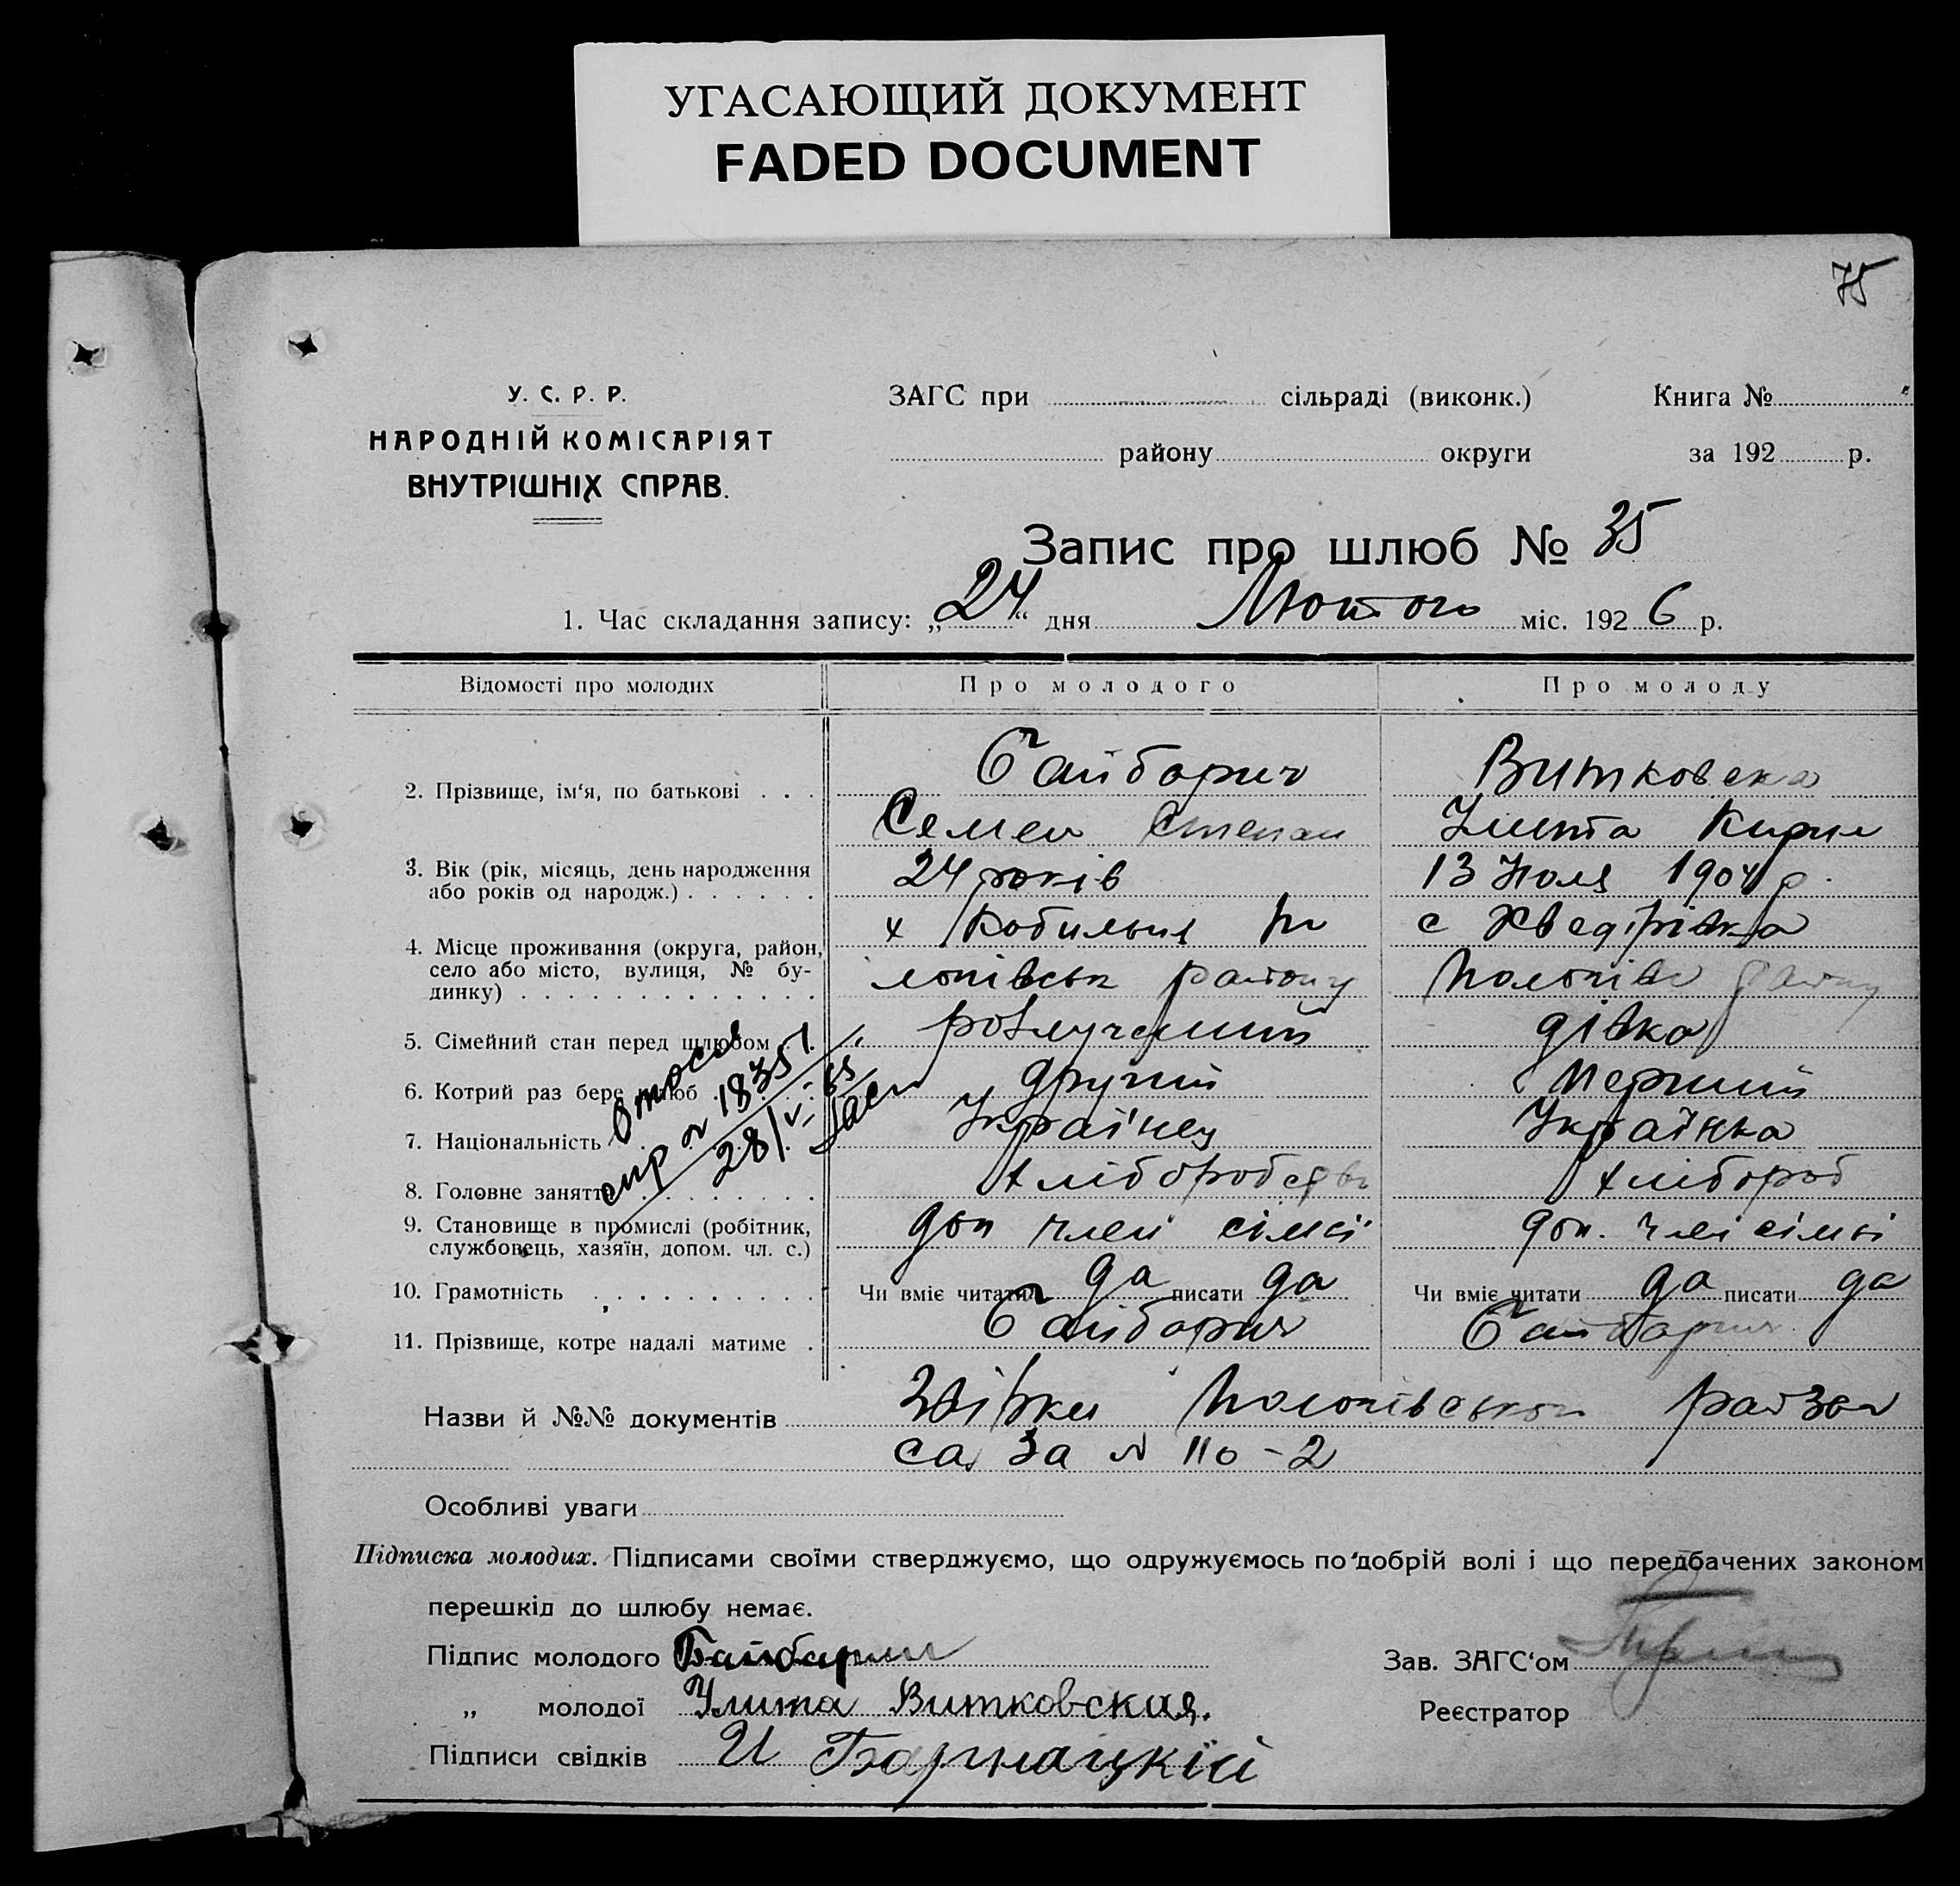 УГАСАЮЩИЙ ДОКУМЕНТ
FADED DOCUMENT
75
У. С. Р. Р.
НАРОДНІЙ КОМІСАРІЯТ
ВНУТРІШНІХ СПРАВ.
ЗАГС при сільраді (виконк.)
району округи
Книга №
за 192 р.
Запис про шлюб № 35
1. Час складання запису: „24“ дня Лютого міс. 1926 р.
Відомості про молодих
Про молодого
Про молоду
2. Прізвище, ім‘я, по батькові . . .
Байбарич
Семен Степан
Витковска
Улита Кирил
3. Вік (рік, місяць, день народження
або років од народж.) . . . . . .
24 років
13 Июля 1904 р.
4. Місце проживання (округа, район,
село або місто, вулиця, № бу-
динку) . . . . . . . . . . . . .
х Кобильня По
лонівськ району
с Хведірівка
Полонівс району
5. Сімейний стан перед шлюбом . .
розлучений
дівка
6. Котрий раз бере шлюб
другий
Перший
7. Національність
Українец
Українка
8. Головне заняття . . . . . . . .
Хліборобство
Хлібороб
9. Становище в промислі (робітник,
службовець, хазяїн, допом. чл. с.)
доп член сімї
доп. члі сімьі
10. Грамотність . . . . . . . . . .
Чи вміє читати да писати да
Чи вміє читати да писати да
11. Прізвище, котре надалі матиме .
Байбарич
Байбарич
спр № 18351
28/V-65
Назви й №№ документів Звірки
са за № 110-2
Особливі уваги
Підписка молодих. Підписами своїми стверджуємо, що одружуємось по добрій волі і що передбачених законом
перешкід до шлюбу немає.
Підпис молодого Байбарич
„ молодої Улита Витковская.
Підписи свідків И
Зав. ЗАГС‘ом
Реєстратор